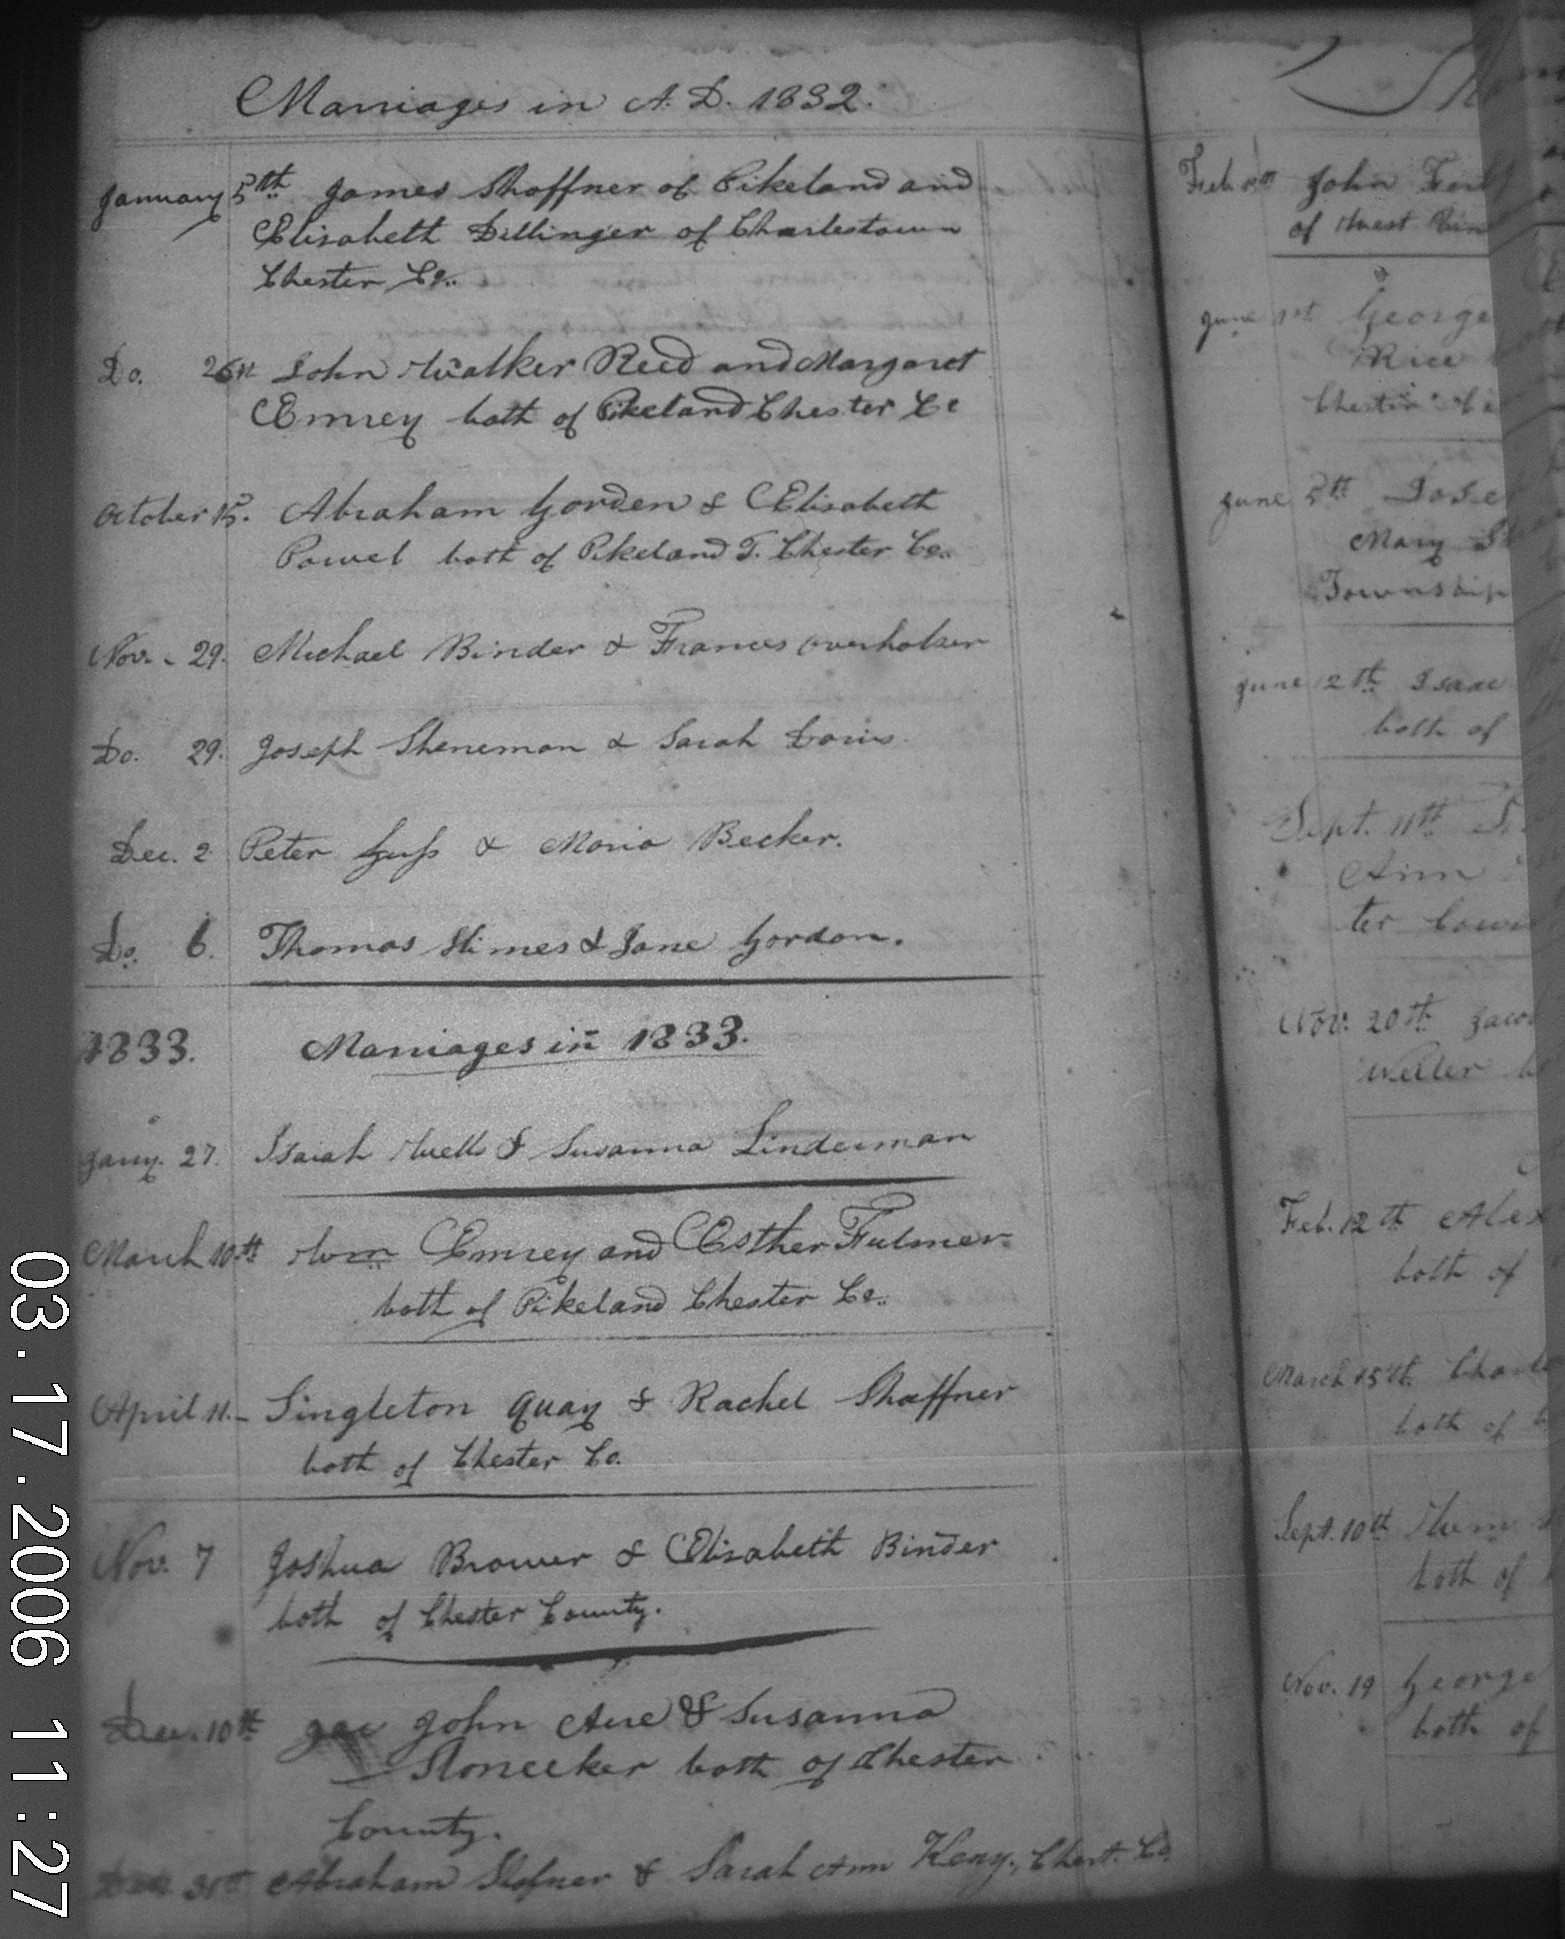 Marriages in A. D. 1832.
January 5th James Shaffner of Pikeland and
Elisabeth Dillinger of Charlestown
Chester Co..
Do. 26th John Walker Reed and Margaret
Emrey both of Pikeland Chester Co
October 15. Abraham Gorden & Elisabeth
Powel both of Pikeland T. Chester Co..
Nov. - 29. Michael Binder & Frances Overholser
Do. 29. Joseph Sheneman & Sarah Davis.
Dec. 2 Peter Guss & Maria Becker.
Do. 6. Thomas Himes & Jane Gordon.
1833. Marriages in 1833.
Jany. 27. Isaiah Wells & Susanna Linderman
March 10th Wm Emrey and Esther Fulmer
both of Pikeland Chester Co..
April 11.- Singleton Quay & Rachel Shaffner
both of Chester Co.
Nov. 7 Joshua Brower & Elisabeth Binder
both of Chester County.
Dec. 10th John Aue & Susanna
Stonecker both of Chester
County.
Dec. 31st Abraham Hefner & Sarah Ann Keny, Chest. Co.
Feb. John
of West
June 1st George
Rice
Chester
June 5th
Mary
Township
June 12th Isaac
both of
Sept. 11th
Ann
ter
Nov. 20th
Weller
Feb. 12th
both of
March 15th
both of
Sept. 10th
both of
Nov. 19 George
both of
03.17.2006 11:27